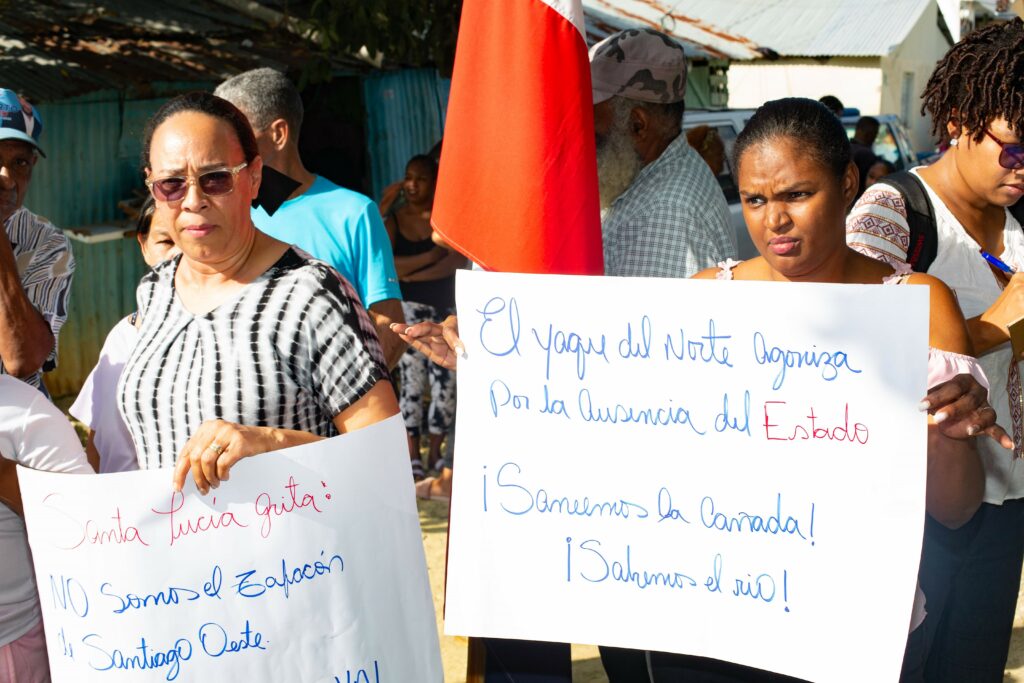 Santa Lucía grita:
NO Somos el Zafacón
de Santiago Oeste.
YA!
El Yaque del Norte Agoniza
Por la Ausencia del Estado
¡Saneemos la Cañada!
¡Salvemos el río!